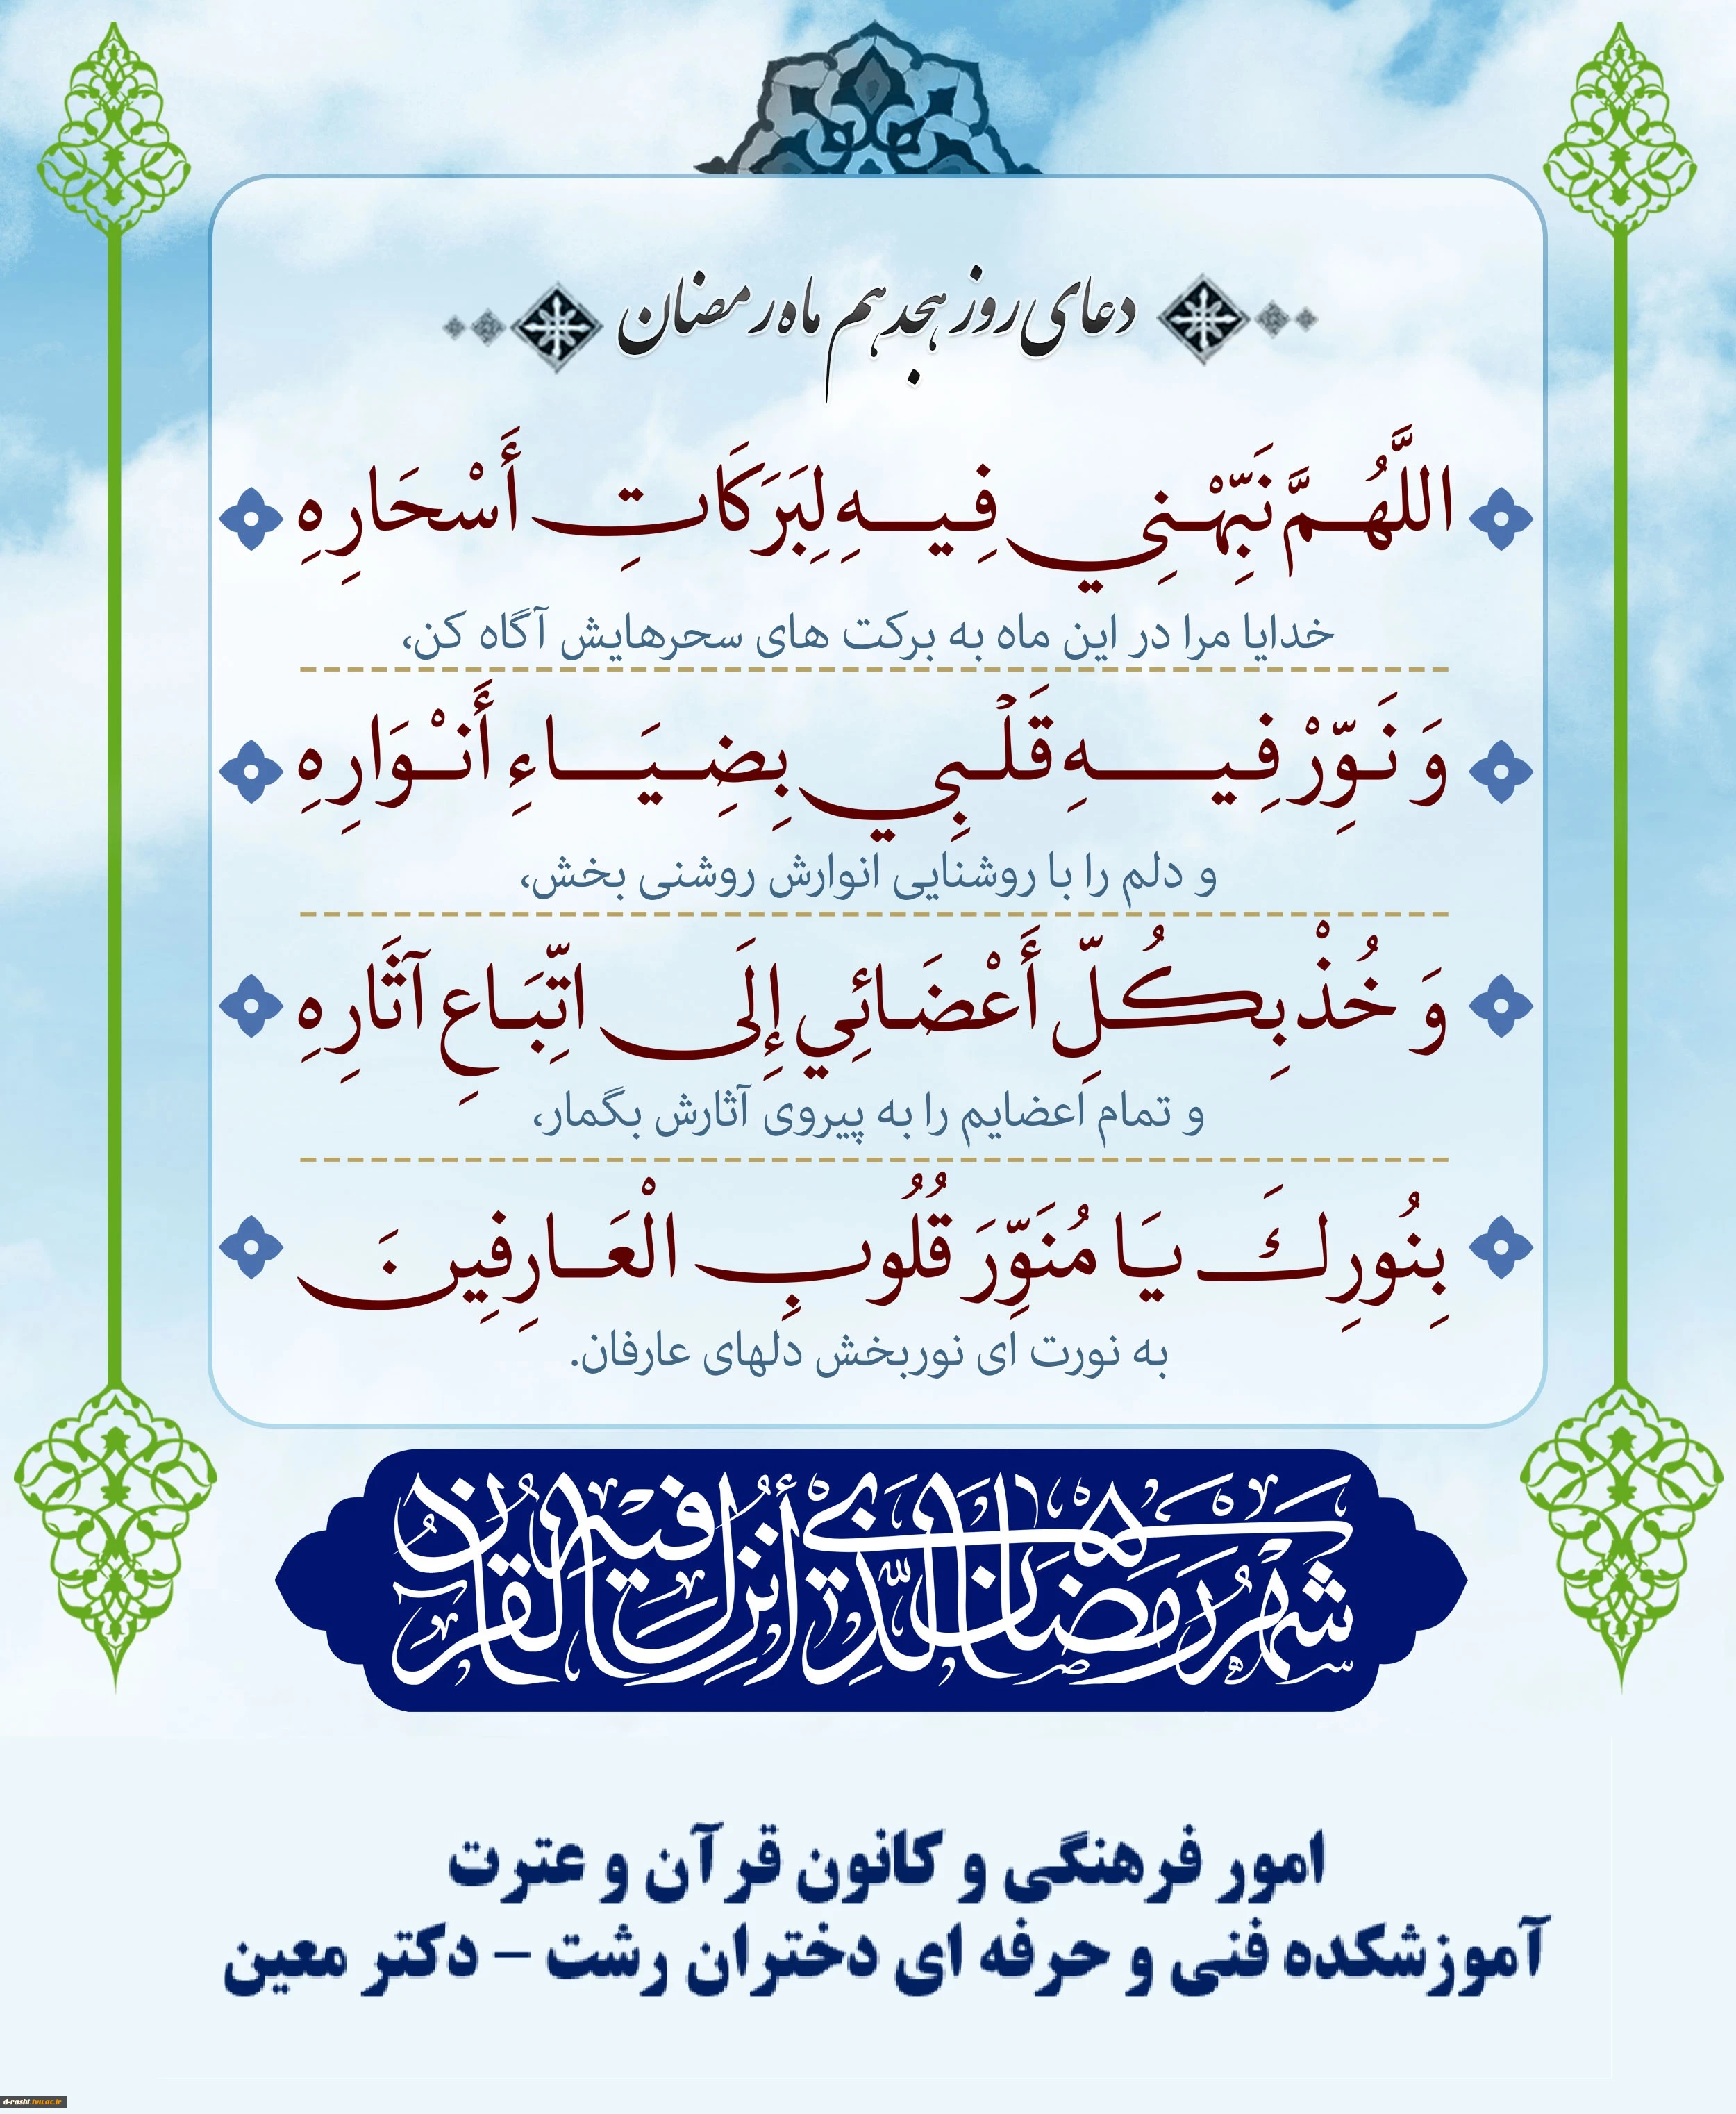 دعای روز هجدهم ماه رمضان
اللَّهُمَّ نَبِّهْنِي فِيهِ لِبَرَكَاتِ أَسْحَارِهِ
خدایا مرا در این ماه به برکت های سحرهایش آگاه کن،
وَ نَوِّرْ فِيهِ قَلْبِي بِضِيَاءِ أَنْوَارِهِ
و دلم را با روشنایی انوارش روشنی بخش،
وَ خُذْ بِكُلِّ أَعْضَائِي إِلَى اتِّبَاعِ آثَارِهِ
و تمام اعضایم را به پیروی آثارش بگمار،
بِنُورِكَ يَا مُنَوِّرَ قُلُوبِ الْعَارِفِينَ
به نورت ای نوربخش دلهای عارفان.
شَهْرُ رَمَضَانَ الَّذِي أُنْزِلَ فِيهِ الْقُرْآنُ
امور فرهنگی و کانون قرآن و عترت
آموزشکده فنی و حرفه ای دختران رشت – دکتر معین
d-rasht.tvu.ac.ir